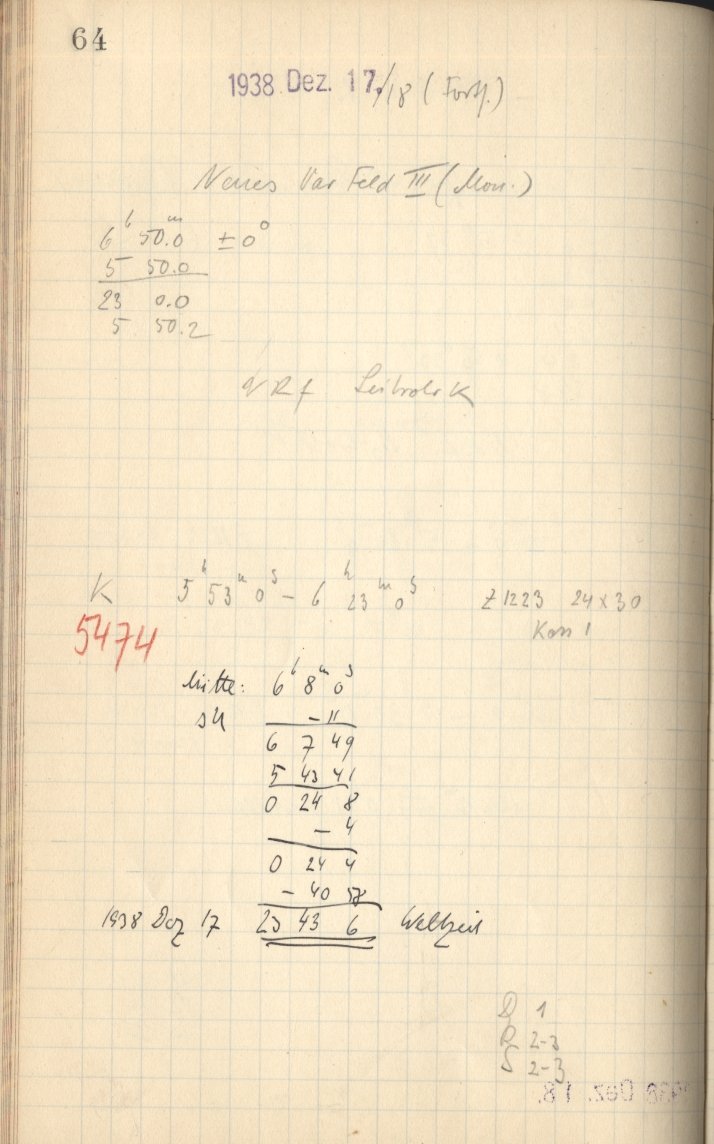 64
1938 Dez. 17./18 (Forts.)
Neues Var Feld III (Mon.)
6h 50.0m ±0°
5 50.0
23 0.0
5 50.2
Leitrohr K
K 5h 53m 0s – 6h 23m 0s Z 1223 24 x 30
5474 Kass 1
Mitte: 6h 8m 0s
– 11
6 7 49
5 43 41
0 24 8
– 4
0 24 4
– 40 58
1938 Dez 17 23 43 6 Weltzeit
D 1
R 2-3
S 2-3
1938 Dez. 18.